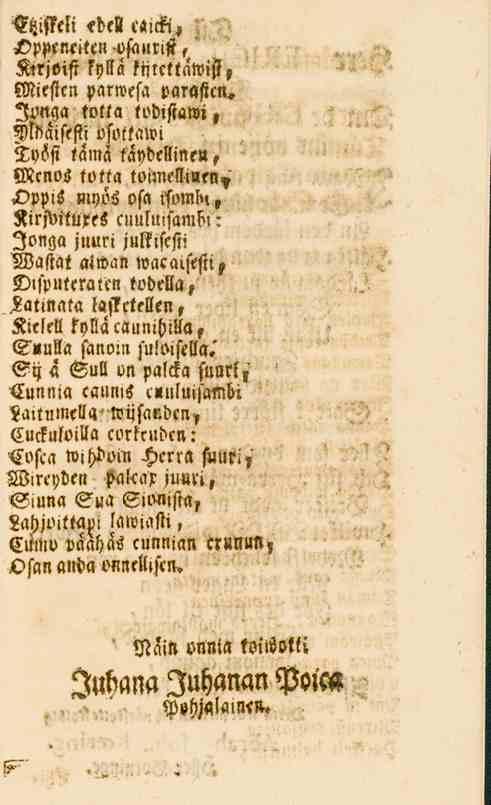 Etziskeli edell caicki,
Oppeneiten osaurist,
Kirjoist kyllä kijtettäwist,
Miesten parwesa parasten.
Jonga totta todistawi,
Yldäisesti osottawi
Työsi tämä täydellinen,
Menos totta toimellinen,
Oppis myös osa isombi,
Kirjoituxes cuuluisambi:
Jonga juuri julkisesti
Wastat aiwan wacaisesti,
Disputeraten todella,
Latinata lasketellen,
Kielell kyllä caunihilla,
Suulla sanoin suloisella.
Sij å Sull on palcka suuri,
Cunnia caunis cuuluisambi
Laitumella wijsauden,
Cuckuloilla corkeuden:
Cosca wihdoin Herra suuri,
Wireyden palcax juuri,
Sinua Sua Sionista,
Lahjoittapi lawiasti,
Cumo päähäs cunnian crunun,
Osan anda onnellisen.
Näin onnia toiwotti
Juhana Juhanan Poica
Pohjalainen.